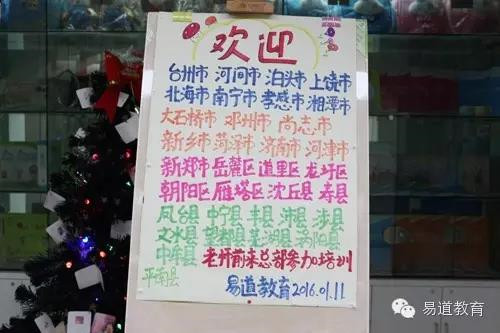 欢迎
台州市 河间市 泊头市 上饶市
北海市 南宁市 孝感市 湘潭市
大石桥市 邓州市 尚志市
新乡市 菏泽市 济南市 河津市
新郑市 岳麓区 道里区 龙圩区
朝阳区 雁塔区 沈丘县 寿县
凤台县 中宁县 丰县 沛县 涉县
文水县 望都县 芜湖县 涡阳县
中牟县 老师前来总部参加培训
平南县
易道教育 2016.01.11
易道教育